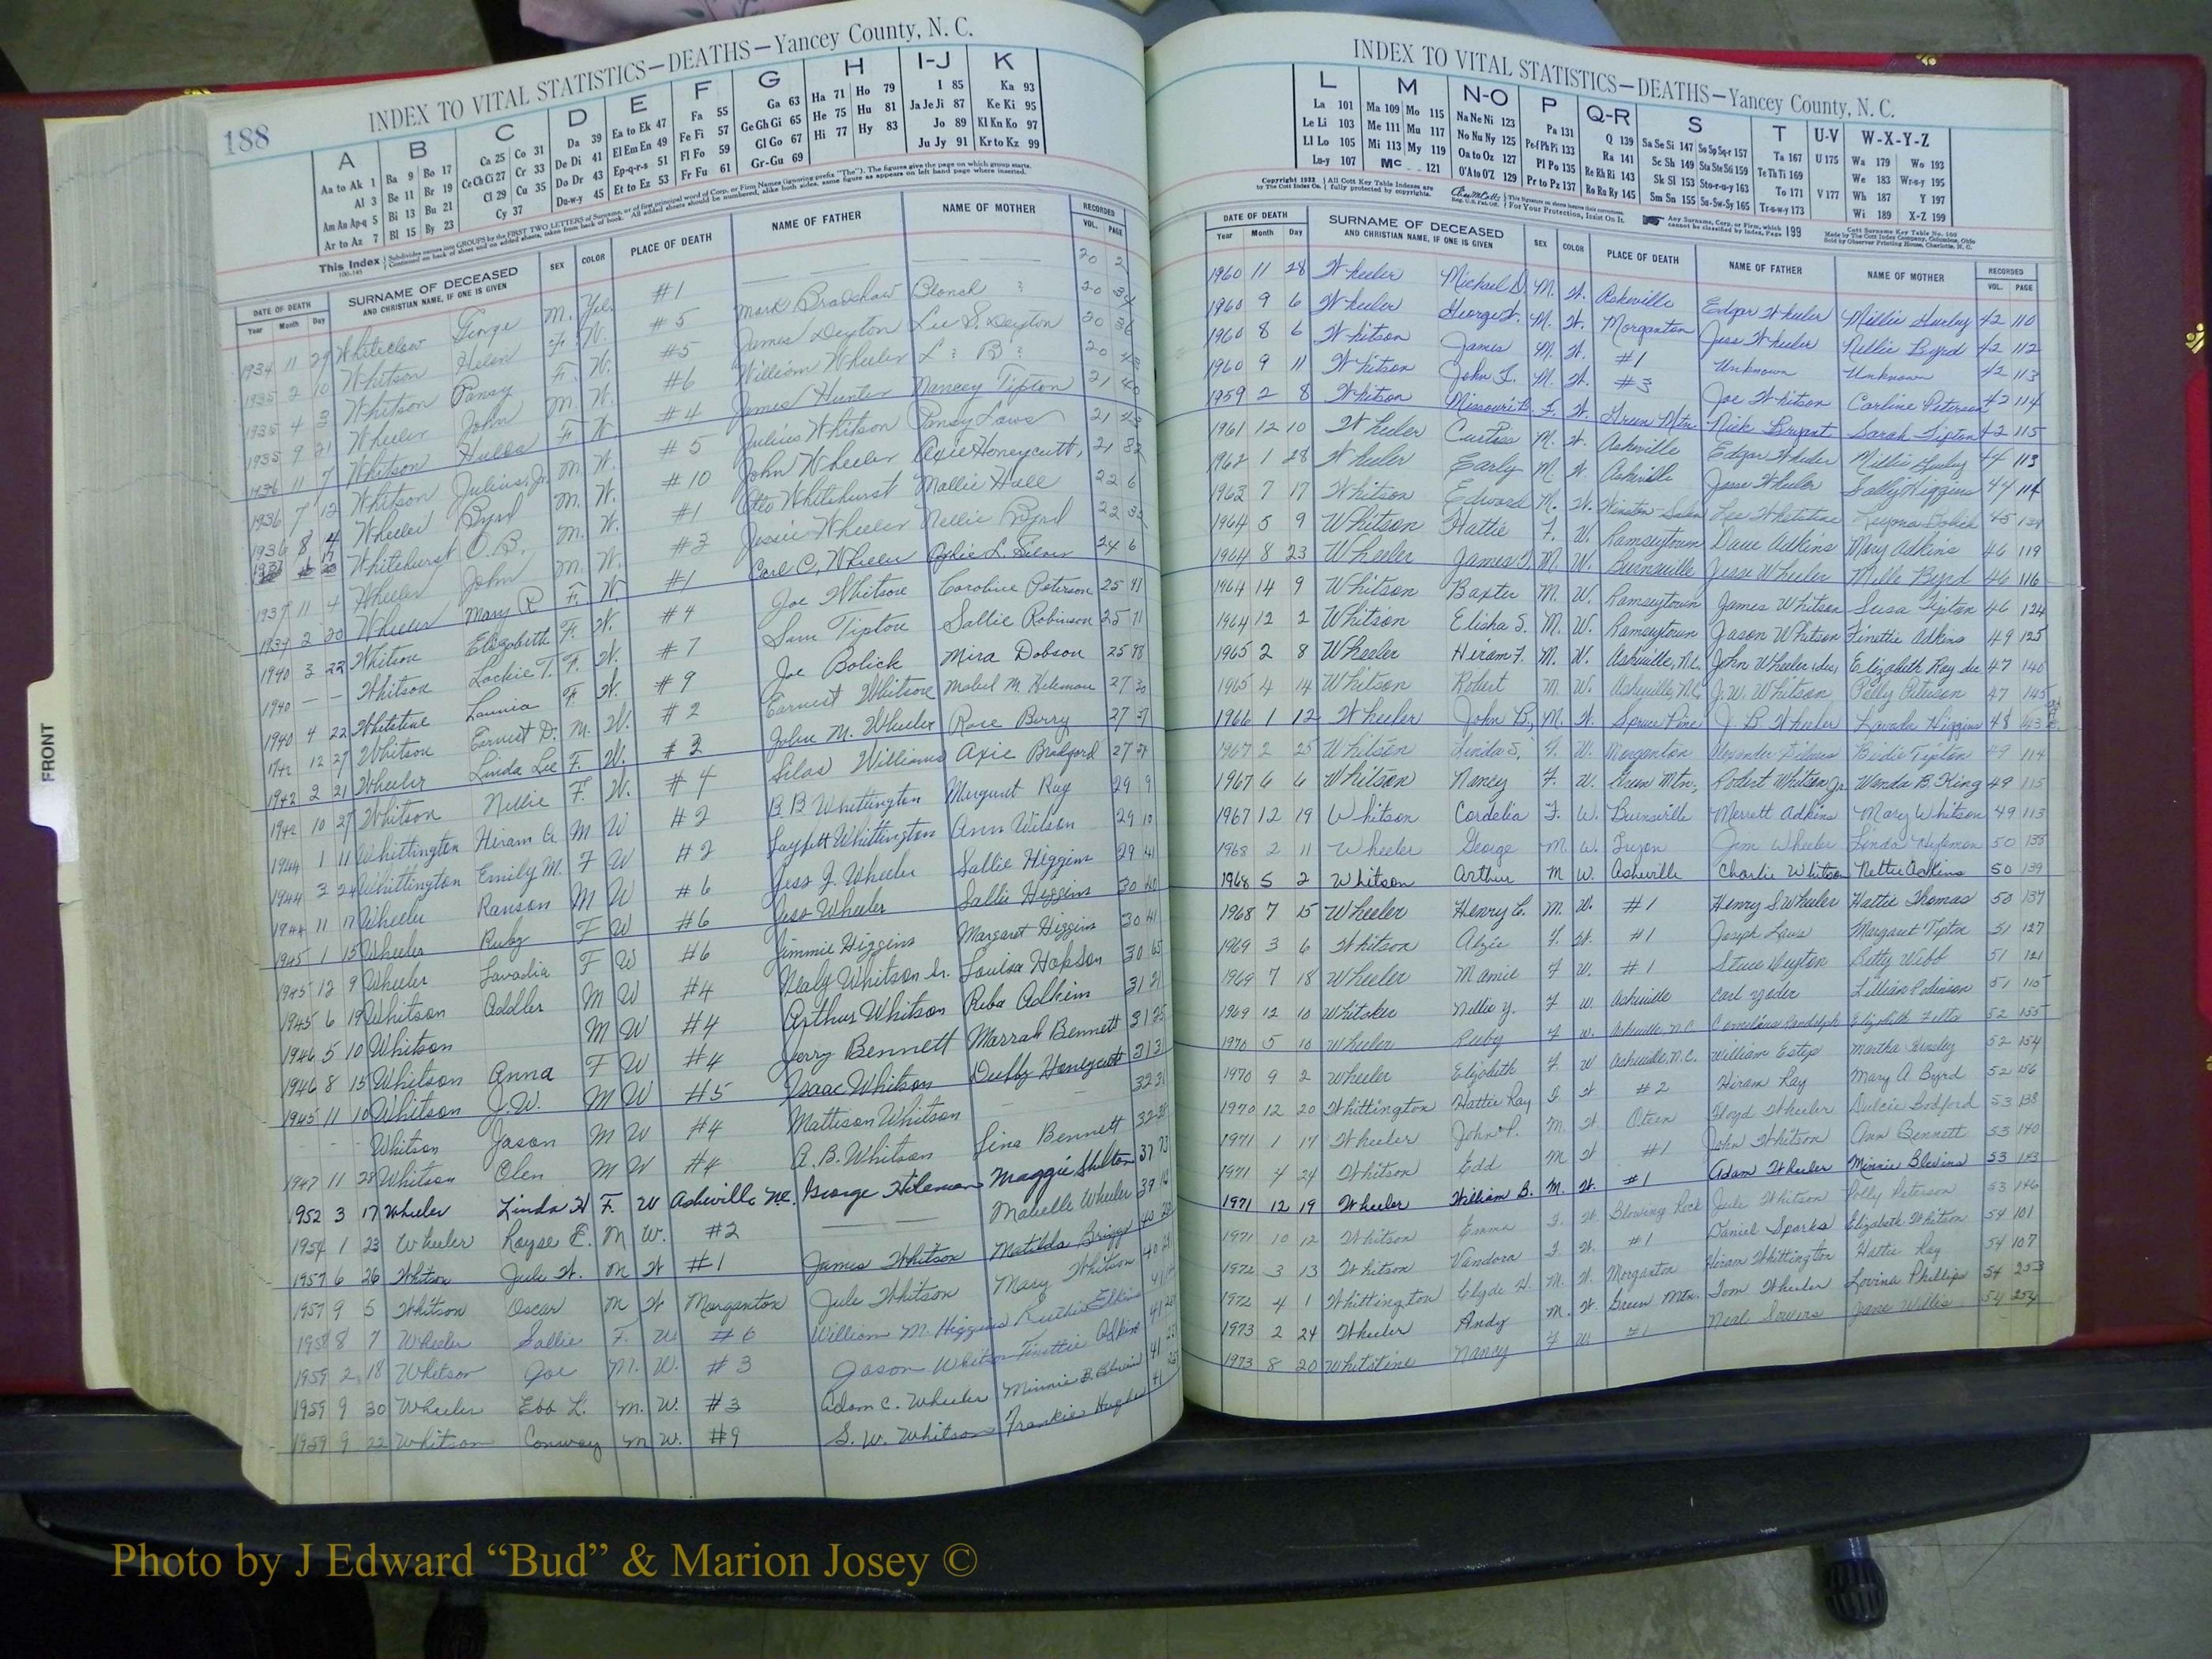 188
INDEX TO VITAL STATISTICS—DEATHS—Yancey County, N. C.
A B C D E F G H I-J K
Aa to Ak 1 Ba 9 Bo 17 Ca 25 Co 31 Da 39 Ea to Ek 47 Fa 55 Ga 63 Ha 71 Ho 79 I 85 Ka 93
Al 3 Be 11 Br 19 Ce Ch Ci 27 Cr 33 De Di 41 El Em En 49 Fe Fi 57 Ge Gh Gi 65 He 75 Hu 81 Ja Je Ji 87 Ke Ki 95
Am An Ap-q 5 Bi 13 Bu 21 Cl 29 Cu 35 Do Dr 43 Ep-q-r-s 51 Fl Fo 59 Gl Go 67 Hi 77 Hy 83 Jo 89 Kl Kn Ko 97
Ar to Az 7 Bl 15 By 23 Cy 37 Du-w-y 45 Et to Ez 53 Fr Fu 61 Gr-Gu 69 Ju Jy 91 Kr to Kz 99
DATE OF DEATH SURNAME OF DECEASED SEX COLOR PLACE OF DEATH NAME OF FATHER NAME OF MOTHER RECORDED
Year Month Day AND CHRISTIAN NAME, IF ONE IS GIVEN VOL. PAGE
1934 11 29 George M. Yel. #1 20 2
1935 2 10 Whitson Helen F. W. #5 Mark Bradshaw
1935 4 3 Whitson Pansy F. W. #5 James Deyton Lee S. Deyton 20 36
1935 9 21 Wheeler John M. W. #6 William Wheeler 20
1936 11 7 Whitson Hulda F W #4 James Hunter Nancey Tipton 21 40
1936 7 12 Whitson Julius, Jr. M. W. #5 Julius Whitson Pansy Laws 21 43
1936 8 4 Wheeler Byrd M. W. #10 John Wheeler Axie Honeycutt, 21 82
1937 Whitehurst O. B. M. W. #1 Otto Whitehurst Mallie Hall 22 6
1937 11 4 Wheeler John M. W. #3 Jessie Wheeler Nellie Byrd 22 32
1939 2 20 Wheeler Mary R F. W. #1 Carl C. Wheeler 24 6
1940 3 22 Whitson Elizabeth F. W. #4 Joe Whitson Caroline Peterson 25 71
1940 — — Whitson Lockie T. F. W. #7 Sam Tipton Sallie Robinson 25 71
1940 4 22 Whitstine F. W. #9 Joe Bolick Mira Dobson 25 98
1942 12 27 Whitson Earnest D. M. W. #2 Earnest Whitson Mabel M. Hileman 27 30
1942 2 21 Wheeler Linda Lee F. W. #2 John M. Wheeler Rose Berry 27 37
1942 10 27 Whitson Nellie F. W. #4 Silas Williams Axie Bradford 27
1944 1 11 Whittington Hiram A M W #2 B B Whittington Margaret Ray 29 9
1944 3 24 Whittington Emily M. F W #2 Whittington Ann Wilson 29 10
1944 11 17 Wheeler Ranson M W #6 Jess J. Wheeler Sallie Higgins 29 41
1945 1 15 Wheeler Ruby F W #6 Jess Wheeler Sallie Higgins 30 40
1945 12 9 Wheeler Lavadia F W #6 Jimmie Higgins Margaret Higgins 30 41
1945 6 19 Whitson Addler M W #4 Nealy Whitson Sr. Louisa Hopson 30 65
1946 5 10 Whitson M W #4 Arthur Whitson Reba Adkins 31 21
1946 8 15 Whitson Anna F W #4 Jerry Bennett Marrah Bennett 31 25
1945 11 10 Whitson J. W. M W #5 Isaac Whitson Honeycutt 31 31
Whitson Jason M W #4 Mattison Whitson 32 21
1947 11 28 Whitson Olen M W #4 A. B. Whitson Lina Bennett 32
1952 3 17 Wheeler Linda H F. W Asheville NC. George Hileman Maggie Shelton 37 73
1954 1 23 Wheeler Royse E. M W. #2 Mabelle Wheeler 39
1957 6 26 Whitson Jule W. M W #1 James Whitson Matilda Briggs 40
1957 9 5 Whitson Oscar M W Morganton Jule Whitson Mary Whitson 40
1958 8 7 Wheeler Sallie F. W #6 William M. Higgins Ruthie Elkins 41
1959 2 18 Whitson Joe M. W. #3 Jason Whitson Finettie Adkins 41
1959 9 30 Wheeler Ebb L. M. W. #3 Adam C. Wheeler Minnie B. Blevins 41
1959 9 22 Whitson Conway M W. #9 S. W. Whitson Frankie Hughes 41
INDEX TO VITAL STATISTICS—DEATHS—Yancey County, N. C.
L M N-O P Q-R S T U-V W-X-Y-Z
La 101 Ma 109 Mo 115 Na Ne Ni 123 Pa 131 Q 139 Sa Se Si 147 So Sp Sq-r 157 Ta 167 U 175 Wa 179 Wo 193
Le Li 103 Me 111 Mu 117 No Nu Ny 125 Pe-f Ph Pi 133 Ra 141 Sc Sh 149 Sta Ste Sti 159 Te Th Ti 169 We 183 Wr-u-y 195
Ll Lo 105 Mi 113 My 119 Oa to Oz 127 Pl Po 135 Re Rh Ri 143 Sk Sl 153 Sto-r-u-y 163 To 171 V 177 Wh 187 Y 197
Lu-y 107 Mc 121 O'A to O'Z 129 Pr to Pz 137 Ro Ru Ry 145 Sm Sn 155 Su-Sw-Sy 165 Tr-u-w-y 173 Wi 189 X-Z 199
DATE OF DEATH SURNAME OF DECEASED SEX COLOR PLACE OF DEATH NAME OF FATHER NAME OF MOTHER RECORDED
Year Month Day AND CHRISTIAN NAME, IF ONE IS GIVEN VOL. PAGE
1960 11 28 Wheeler Michael D. M. W. Asheville Edgar Wheeler Millie Hurley 42 110
1960 9 6 Wheeler George W. M. W. Morganton Jess Wheeler Nellie Byrd 42 112
1960 8 6 Whitson James M. W. #1 Unknown Unknown 42 113
1960 9 11 Whitson John L. M. W. #3 Joe Whitson Carline Peterson 42 114
1959 2 8 Whitson Missouri B. F. W. Green Mtn. Nick Bryant Sarah Tipton 42 115
1961 12 10 Wheeler Curtiss M. W. Asheville Edgar Wheeler Millie Hurley 44 113
1962 1 28 Wheeler Early M W Asheville Jesse Wheeler Sally Higgins 44 114
1963 7 17 Whitson Edward M. W. Winston-Salem Lee Whitstine 45
1964 5 9 Whitson Hattie F. W. Ramseytown Dave Adkins Mary Adkins 46 119
1964 8 23 Wheeler James T. M. W. Burnsville Jesse Wheeler Mille Byrd 46 116
1964 14 9 Whitson Baxter M. W. Ramseytown James Whitson Susa Tipton 46 124
1964 12 2 Whitson Elisha S. M. W. Ramseytown Jason Whitson Finettie Adkins 49 125
1965 2 8 Wheeler Hiram F. M. W. Asheville, N.C. John Wheeler, dec. Elizabeth Ray dec 47 140
1965 4 14 Whitson Robert M. W. Asheville, N.C. J. W. Whitson Polly Peterson 47 145
1966 1 12 Wheeler John B., M. W. Spruce Pine J. B Wheeler Lavada Higgins 48
1967 2 25 Whitson Linda S., F. W. Morganton Birdie Tipton 49 114
1967 6 6 Whitson Nancy F. W. Green Mtn., Robert Whitson Jr. Wanda B. King 49 115
1967 12 19 Whitson Cordelia F. W. Burnsville Merrett Adkins Mary Whitson 49 113
1968 2 11 Wheeler George M. W. Tryon Jim Wheeler Linda Hyleman 50 138
1968 5 2 Whitson Arthur M W. Asheville Charlie Whitson Nettie Adkins 50 139
1968 7 15 Wheeler Henry C. M. W. #1 Henry S. Wheeler Hattie Thomas 50 137
1969 3 6 Whitson Alzie F. W. #1 Joseph Laws Margaret Tipton 51 127
1969 7 18 Wheeler Mamie F W. #1 Steve Deyton Betty Webb 51 121
1969 12 10 Whitaker Nellie Y. F W. Asheville Carl Yoder Lillian Robinson 51 115
1970 5 10 Wheeler Ruby F W. Asheville N.C. Cornelius Randolph Elizabeth 52 155
1970 9 2 Wheeler Elizabeth F W Asheville N.C. William Estep Martha 52 154
1970 12 20 Whittington Hattie Ray F W #2 Hiram Ray Mary A. Byrd 52 156
1971 1 17 Wheeler John P. M. W. Oteen Floyd Wheeler Dulcie Bodford 53 138
1971 4 24 Whitson Edd M W #1 John Whitson Ann Bennett 53 140
1971 12 19 Wheeler William B. M. W. #1 Adam Wheeler Minnie Blevins 53 143
1971 10 12 Whitson Emma F. W. Blowing Rock Jule Whitson Polly Peterson 53 146
1972 3 13 Whitson Vandora F. W. #1 Daniel Sparks Elizabeth Whitson 54 101
1972 4 1 Whittington Clyde H. M. W. Morganton Hiram Whittington Hattie Ray 54 107
1973 2 24 Wheeler Andy M. W. Green Mtn. Tom Wheeler Lovina Phillips 54 253
1973 8 20 Whitstine Nancy F W. #1 Neal Jane Willis 54 254
FRONT
Photo by J Edward “Bud” & Marion Josey ©